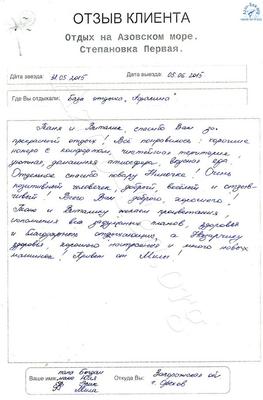 ОТЗЫВ КЛИЕНТА
Отдых на Азовском море.
Степановка Первая.
Дата заезда: 31.05 2015 Дата выезда: 05.06 2015
Где Вы отдыхали: База отдыха
Таня и Виталик, спасибо Вам за
прекрасный отдых! Всё понравилось: хорошие
номера с комфортом, чистейшая территория,
уютная, домашняя атмосфера, вкусная еда.
Отдельное спасибо повару Ниночке! Очень
позитивный человек, добрый, весёлый и отзыв-
чивый! Всего Вам доброго, хорошего!
Тане и Виталику желаем процветания,
исполнения всех задуманных планов, здоровья
и благодарных отдыхающих, а Назарчику
здоровья, хорошего настроения и много новых
машинок! Привет от Милы!
папа Богдан
Ваше имя: мама Юля Откуда Вы: Запорожская обл
Мила г. Орехов